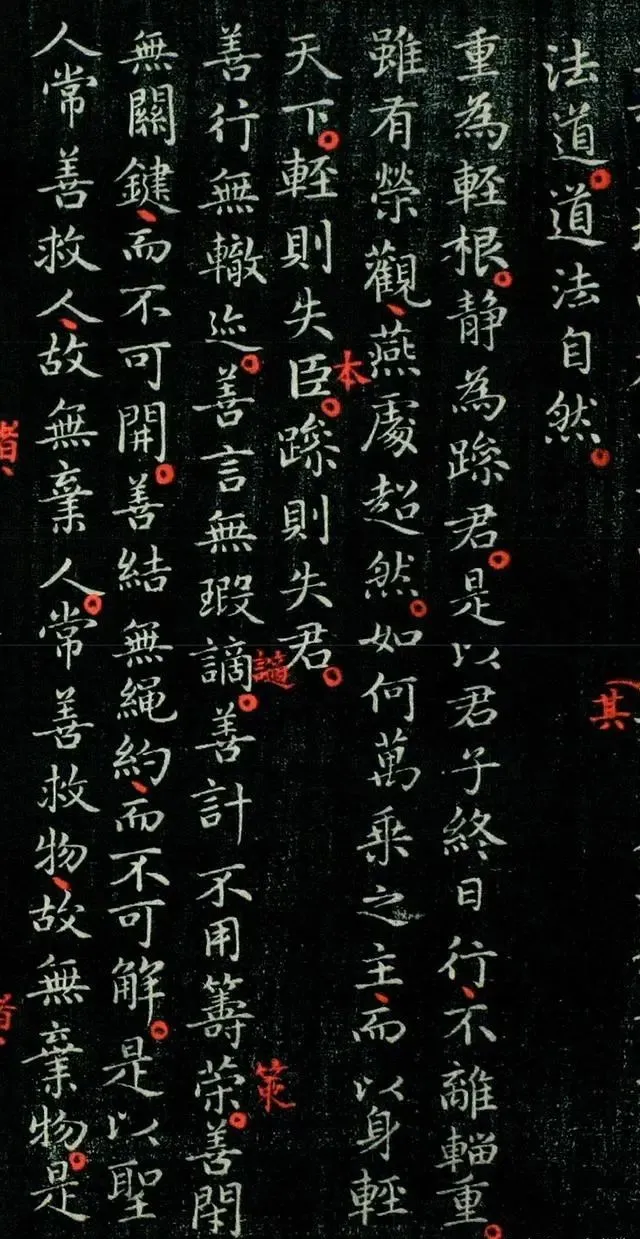 其
法道。道法自然。
重為輕根。静為躁君。是以君子終日行、不離輜重。
雖有榮觀、燕處超然。如何萬乗之主、而以身輕
本
天下。輕則失臣。躁則失君。
讁
筴
善行無轍迹。善言無瑕謫。善計不用籌策。善閇
無關鍵、而不可開。善結無繩約、而不可解。是以聖
人常善救人、故無棄人。常善救物、故無棄物。是